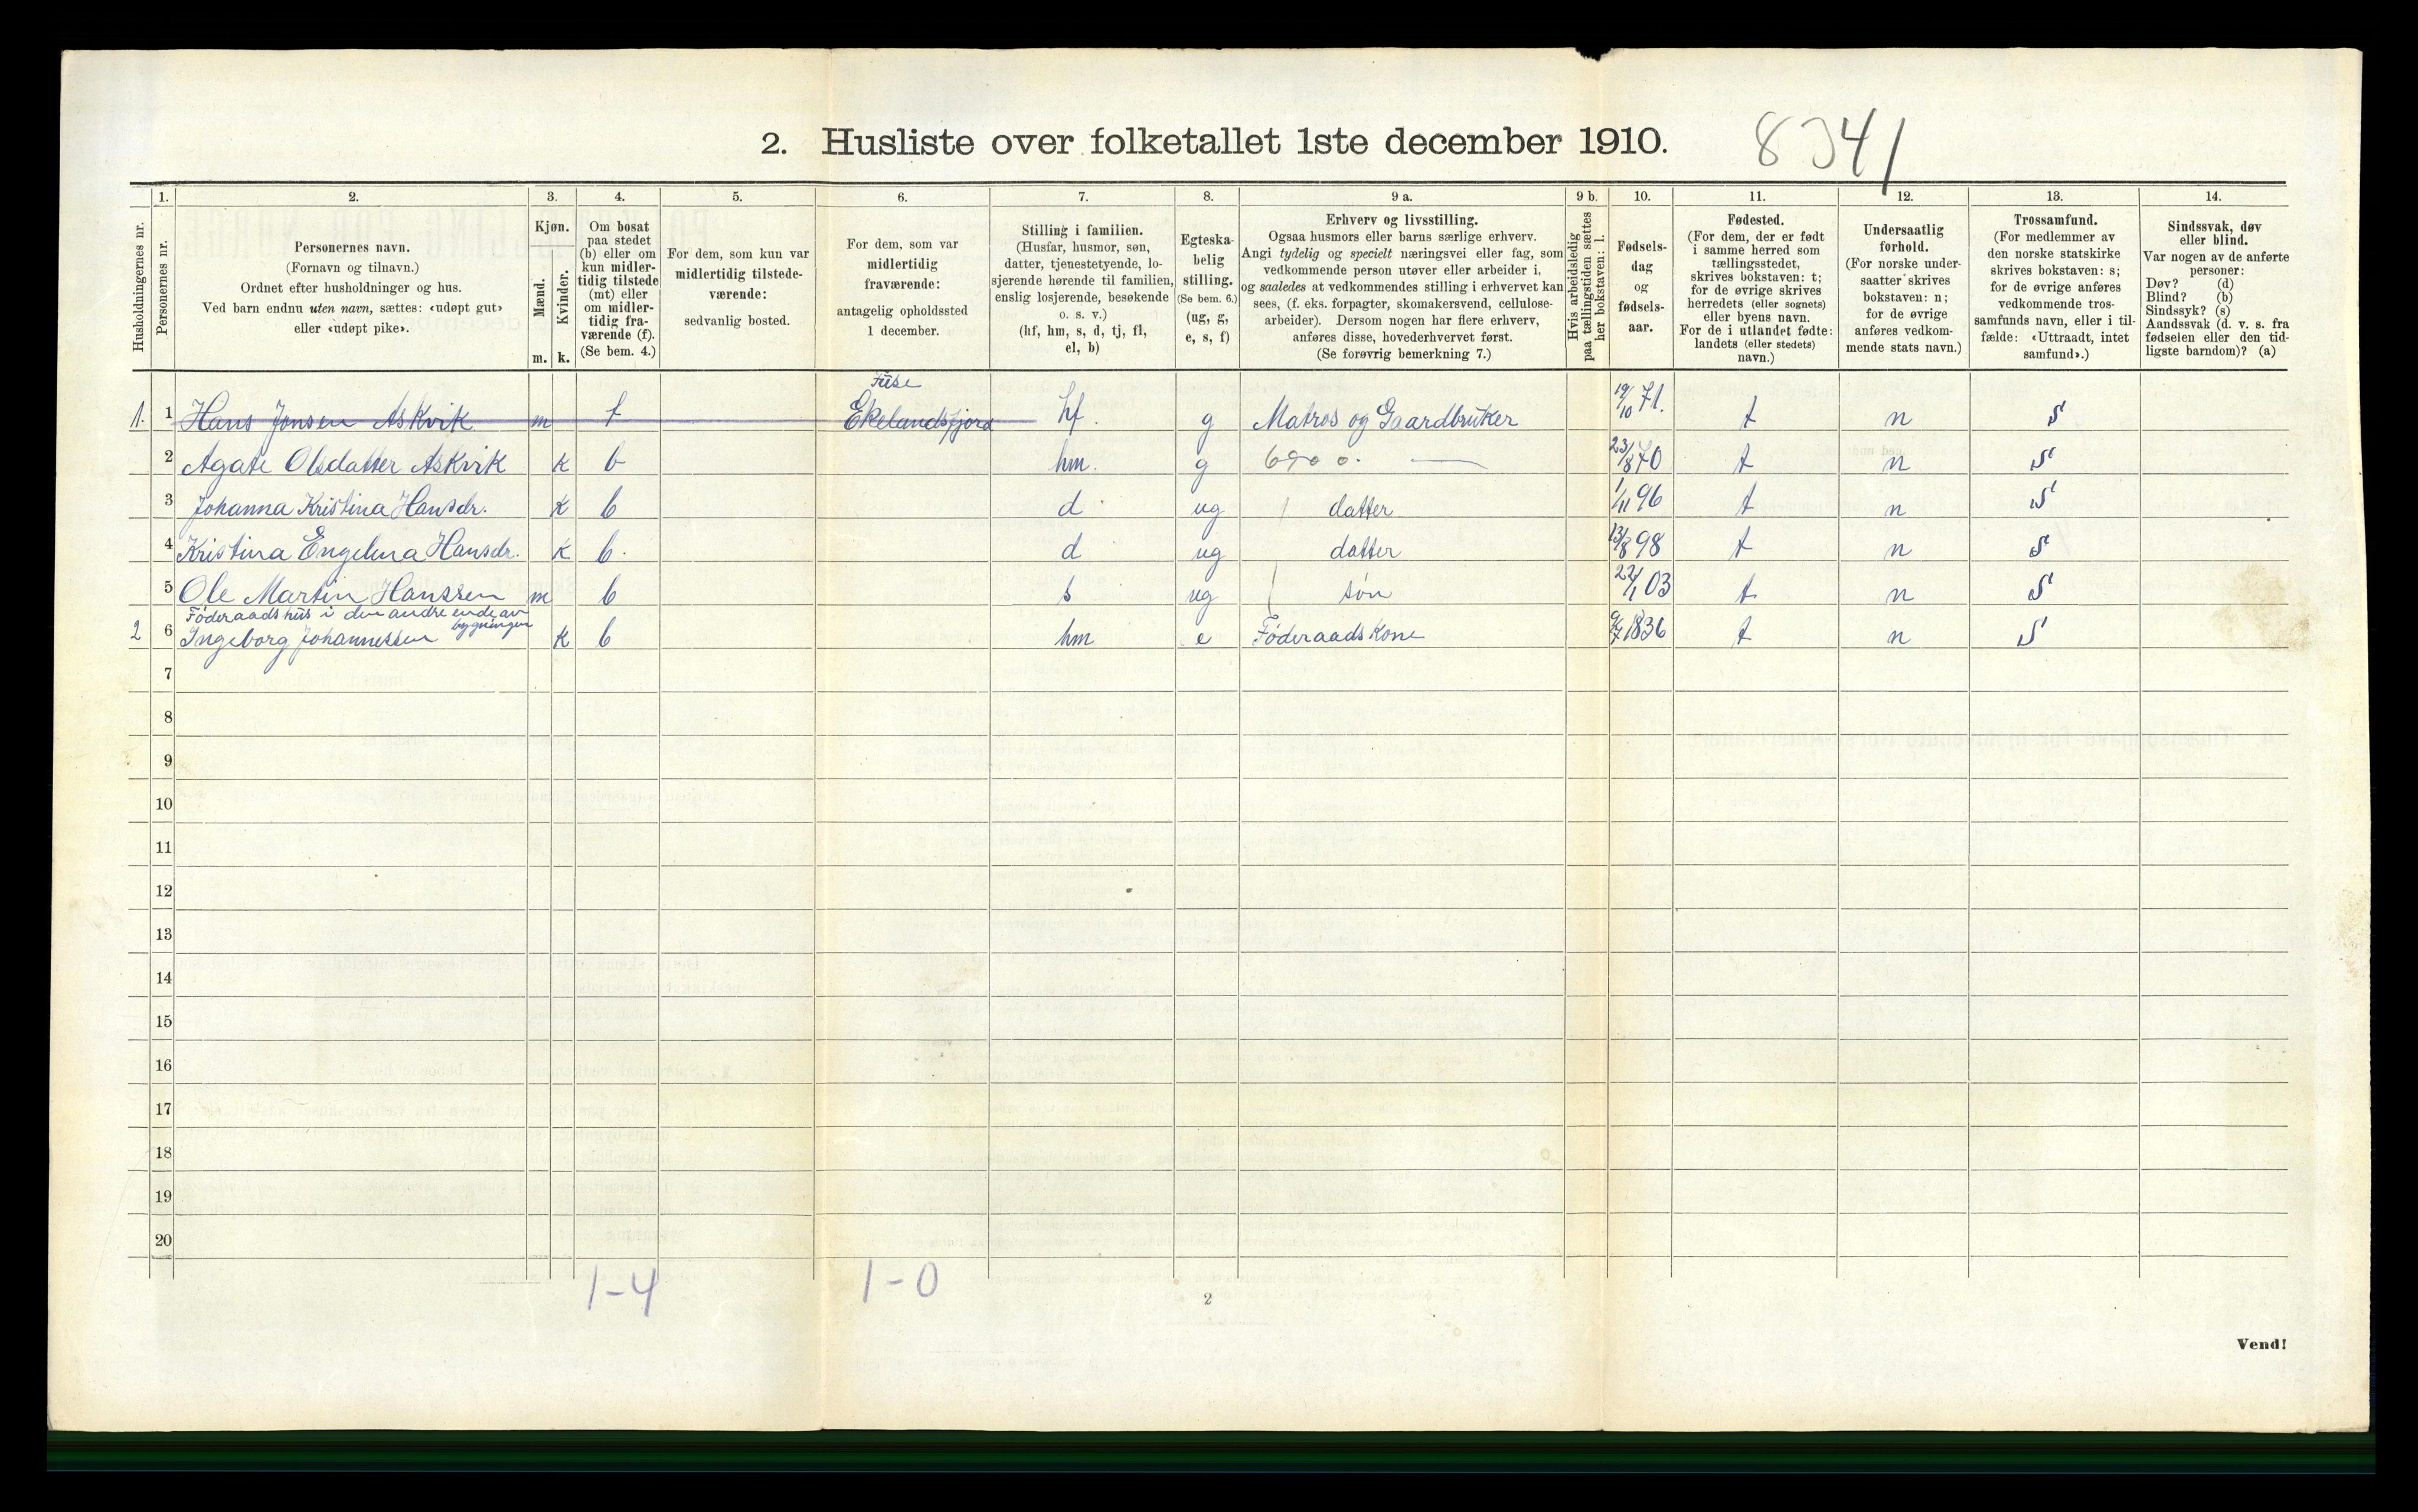 2. Husliste over folketallet 1ste december 1910.
8341
Husholdningernes nr.
1.
Personernes nr.
2.
Personernes navn.
(Fornavn og tilnavn.)
Ordnet efter husholdninger og hus.
Ved barn endnu uten navn, sættes: «udøpt gut»
eller «udøpt pike».
3.
Kjøn.
Mænd.
Kvinder.
m. k.
4.
Om bosat
paa stedet
(b) eller om
kun midler-
tidig tilstede
(mt) eller
om midler-
tidig fra-
værende (f).
(Se bem. 4.)
5.
For dem, som kun var
midlertidig tilstede-
værende:
sedvanlig bosted.
6.
For dem, som var
midlertidig
fraværende:
antagelig opholdssted
1 december.
7.
Stilling i familien.
(Husfar, husmor, søn,
datter, tjenestetyende, lo-
sjerende hørende til familien,
enslig losjerende, besøkende
o. s. v.)
(hf, hm, s, d, tj, fl,
el, b)
8.
Egteska-
belig
stilling.
(Se bem. 6.)
(ug, g,
e, s, f)
9 a.
Erhverv og livsstilling.
Ogsaa husmors eller barns særlige erhverv.
Angi tydelig og specielt næringsvei eller fag, som
vedkommende person utøver eller arbeider i,
og saaledes at vedkommendes stilling i erhvervet kan
sees, (f. eks. forpagter, skomakersvend, cellulose-
arbeider). Dersom nogen har flere erhverv,
anføres disse, hovederhvervet først.
(Se forøvrig bemerkning 7.)
9 b.
Hvis arbeidsledig
paa tællingstiden sættes
her bokstaven: l.
10.
Fødsels-
dag
og
fødsels-
aar.
11.
Fødested.
(For dem, der er født
i samme herred som
tællingsstedet,
skrives bokstaven: t;
for de øvrige skrives
herredets (eller sognets)
eller byens navn.
For de i utlandet fødte:
landets (eller stedets)
navn.)
12.
Undersaatlig
forhold.
(For norske under-
saatter skrives
bokstaven: n;
for de øvrige
anføres vedkom-
mende stats navn.)
13.
Trossamfund.
(For medlemmer av
den norske statskirke
skrives bokstaven: s;
for de øvrige anføres
vedkommende tros-
samfunds navn, eller i til-
fælde: «Uttraadt, intet
samfund».)
14.
Sindssvak, døv
eller blind.
Var nogen av de anførte
personer:
Døv? (d)
Blind? (b)
Sindssyk? (s)
Aandssvak (d. v. s. fra
fødselen eller den tid-
ligste barndom)? (a)
Fuse
1. 1 Hans Jonsen Askvik m f Ekelandsfjord hf. g Matros og Gaardbruker 19/10 71. t n S
2 Agate Olsdatter Askvik k b hm. g 6900. — 23/8 70 t n S
3 Johanna Kristina Hansdr. k b d ug datter 1/11 96 t n S
4 Kristina Engelina Hansdr. k b. d ug datter 13/8 98 t n S
5 Ole Martin Hanssen m b s ug søn 22/1 03 t n S
Føderaadshus i den andre ende av
bygningen
2 6 Ingeborg Johannessen k b hm e Føderaadskone 9/7 1836 t n S
7
8
9
10
11
12
13
14
15
16
17
18
19
20
1-4 1-0
2
Vend!